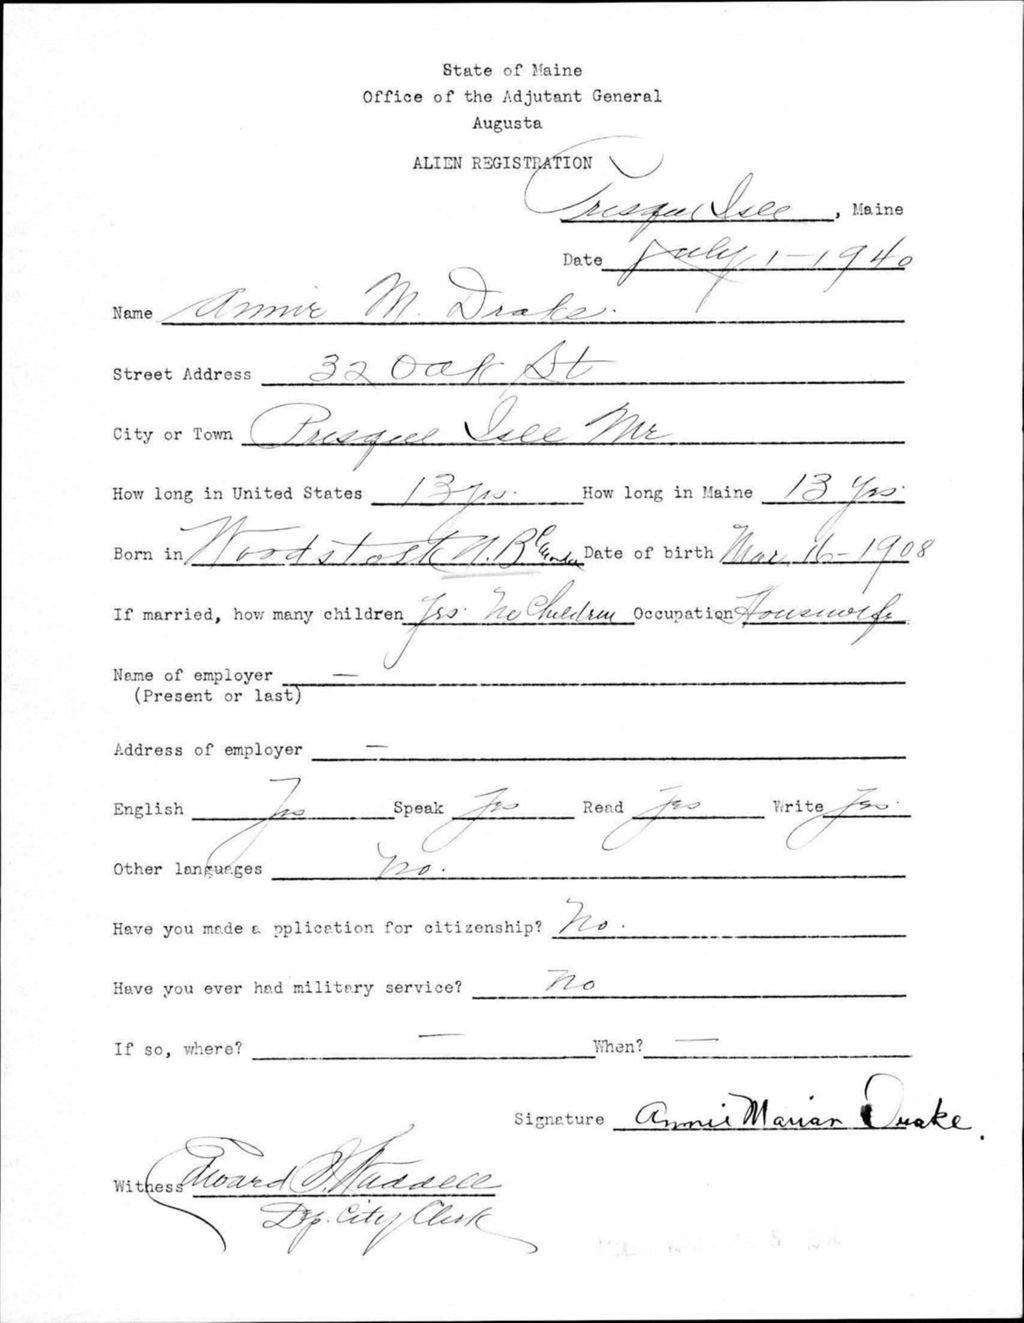 State of Maine
Office of the Adjutant General
Augusta
ALIEN REGISTRATION
Presque Isle, Maine
Date July 1-1940
Name Annie M. Drake.
Street Address 32 Oak St
City or Town Presque Isle Me
How long in United States 13 yrs. How long in Maine 13 Yrs.
Born in Woodstock N.B. Canada Date of birth Mar. 16-1908
If married, how many children Yes. No Children Occupation Housewife
Name of employer —
(Present or last)
Address of employer —
English Yes Speak Yes Read Yes Write Yes.
Other languages No.
Have you made a pplication for citizenship? No.
Have you ever had military service? No
If so, where? — When? —
Signature Annie Marian Drake.
Witness Edward I. Waddell
Dep. City Clerk